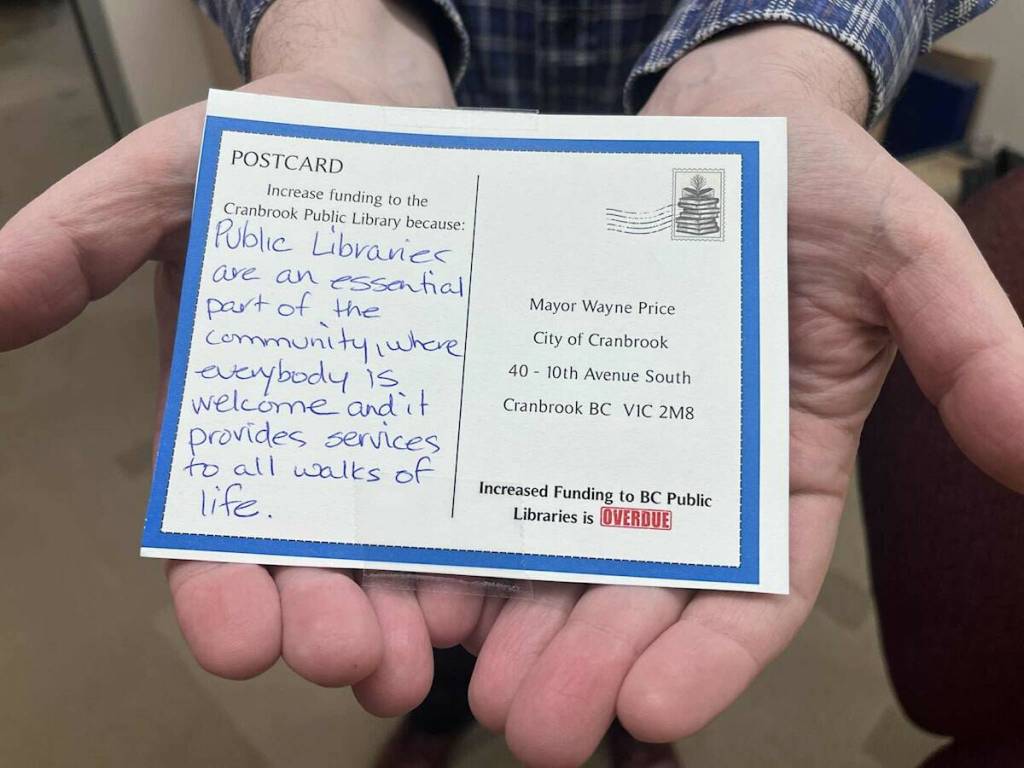 POSTCARD
Increase funding to the
Cranbrook Public Library because:
Public Libraries
are an essential
part of the
community, where
everybody is
welcome and it
provides services
to all walks of
life.
Mayor Wayne Price
City of Cranbrook
40 - 10th Avenue South
Cranbrook BC V1C 2M8
Increased Funding to BC Public
Libraries is OVERDUE